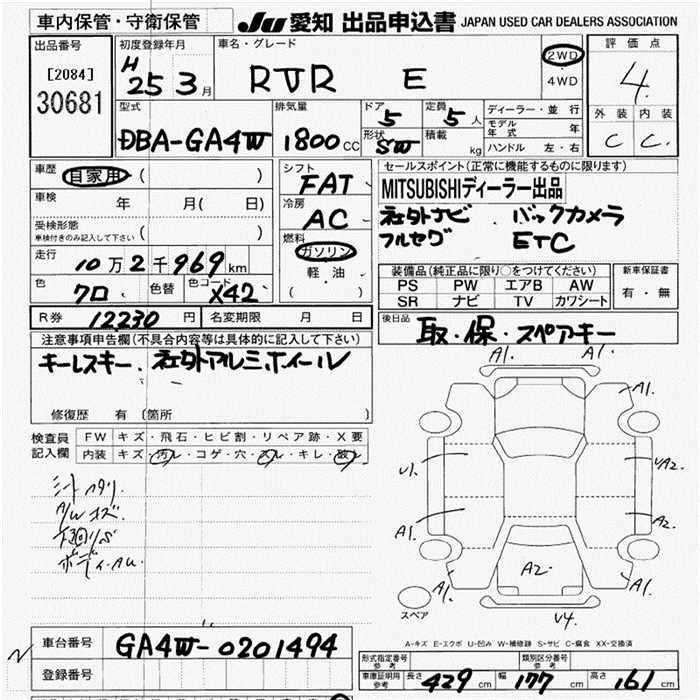 車内保管・守衛保管
JU 愛知 出品申込書 JAPAN USED CAR DEALERS ASSOCIATION
出品番号 初度登録年月 車名・グレード 評価点
[2084] H 25 3月 RVR E 2WD・4WD 4
30681
型式 排気量 ドア 5 定員 5人 ディーラー・並行 外装 内装
DBA-GA4W 1800CC 形状 SW 積載 kg モデル年式 年 C C
ハンドル 左・右
車歴 自家用 ( ) シフト FAT セールスポイント(正常に機能するものに限ります)
車検 年 月( 日) 冷房 AC MITSUBISHIディーラー出品
受検形態 車検付きのみ記入して下さい ( ) 燃料 ガソリン・軽油 ( ) 社外ナビ バックカメラ
フルセグ ETC
走行 10万2千969km
色 クロ 色替 色コード X42
装備品(純正品に限り○をつけてください) 新車保証書
PS PW エアB AW 有・無
SR ナビ TV カワシート
R券 12230円 名変期限 月 日
後日品 取・保・スペアキー
注意事項申告欄(不具合内容等は具体的に記入して下さい)
キーレスキー、社外アルミホイール
修復歴 有 〔箇所 〕
検査員記入欄 FW キズ・飛石・ヒビ割・リペア跡・X要
内装 キズ・汚レ・コゲ・穴・スレ・キレ・破レ
A/Wキズ
A1. A1.
A1.
U1. UA2.
A1. A2.
A2.
A1. A1.
スペア U4.
A-キズ E-エクボ U-凹み W-補修跡 S-サビ C-腐食 XX-交換済
車台番号 GA4W-0201494
登録番号
形式指定番号 参考 類別区分番号 参考
車庫証明用 参考 長さ 429cm 幅 177cm 高さ 161cm